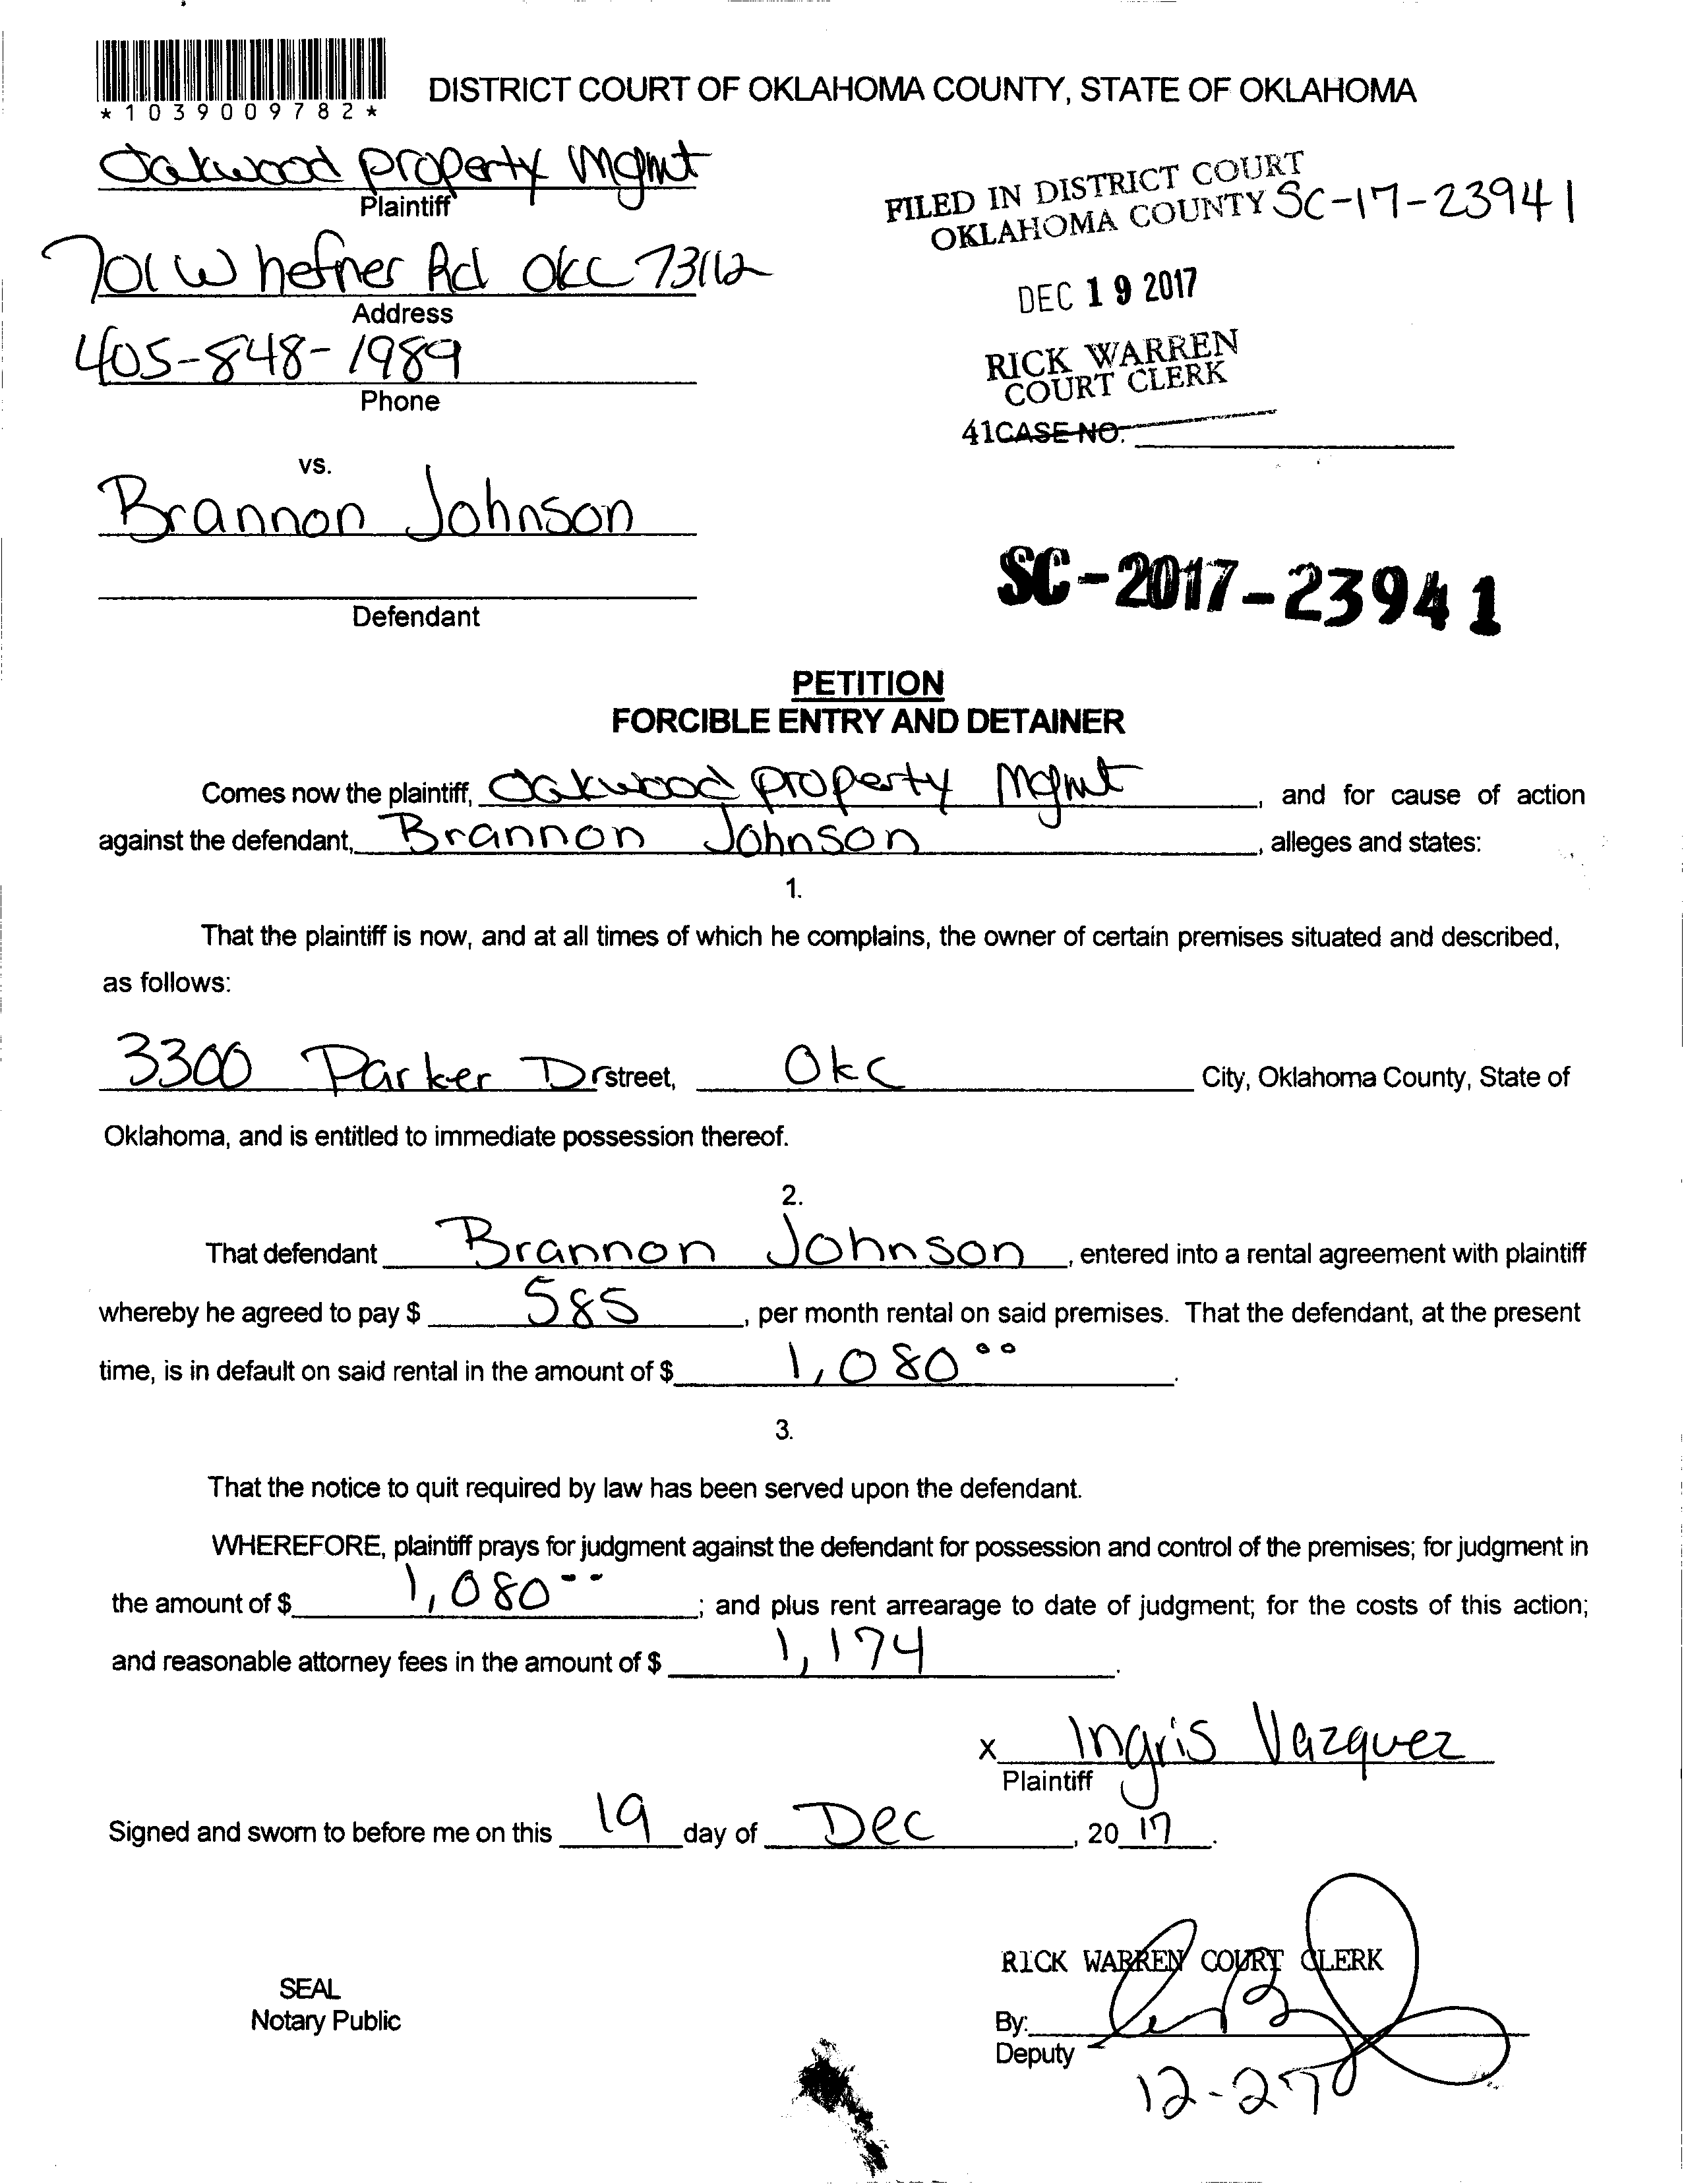 *1039009782*
DISTRICT COURT OF OKLAHOMA COUNTY, STATE OF OKLAHOMA
Oakwood property Mgmt
Plaintiff
FILED IN DISTRICT COURT
OKLAHOMA COUNTY SC-17-23941
701 W hefner Rd OKC 73112
Address
DEC 19 2017
405-848-1989
Phone
RICK WARREN
COURT CLERK
41 CASE NO.
vs.
Brannon Johnson
Defendant
SC-2017-23941
PETITION
FORCIBLE ENTRY AND DETAINER
Comes now the plaintiff, Oakwood property Mgmt, and for cause of action
against the defendant, Brannon Johnson, alleges and states:
1.
That the plaintiff is now, and at all times of which he complains, the owner of certain premises situated and described,
as follows:
3300 Parker Dr street, Okc City, Oklahoma County, State of
Oklahoma, and is entitled to immediate possession thereof.
2.
That defendant Brannon Johnson, entered into a rental agreement with plaintiff
whereby he agreed to pay $ 585, per month rental on said premises. That the defendant, at the present
time, is in default on said rental in the amount of $ 1,080 00.
3.
That the notice to quit required by law has been served upon the defendant.
WHEREFORE, plaintiff prays for judgment against the defendant for possession and control of the premises; for judgment in
the amount of $ 1,080 --; and plus rent arrearage to date of judgment; for the costs of this action;
and reasonable attorney fees in the amount of $ 1,174.
x Ingris Vazquez
Plaintiff
Signed and sworn to before me on this 19 day of Dec, 20 17.
RICK WARREN COURT CLERK
SEAL
Notary Public
By:
Deputy
12-27